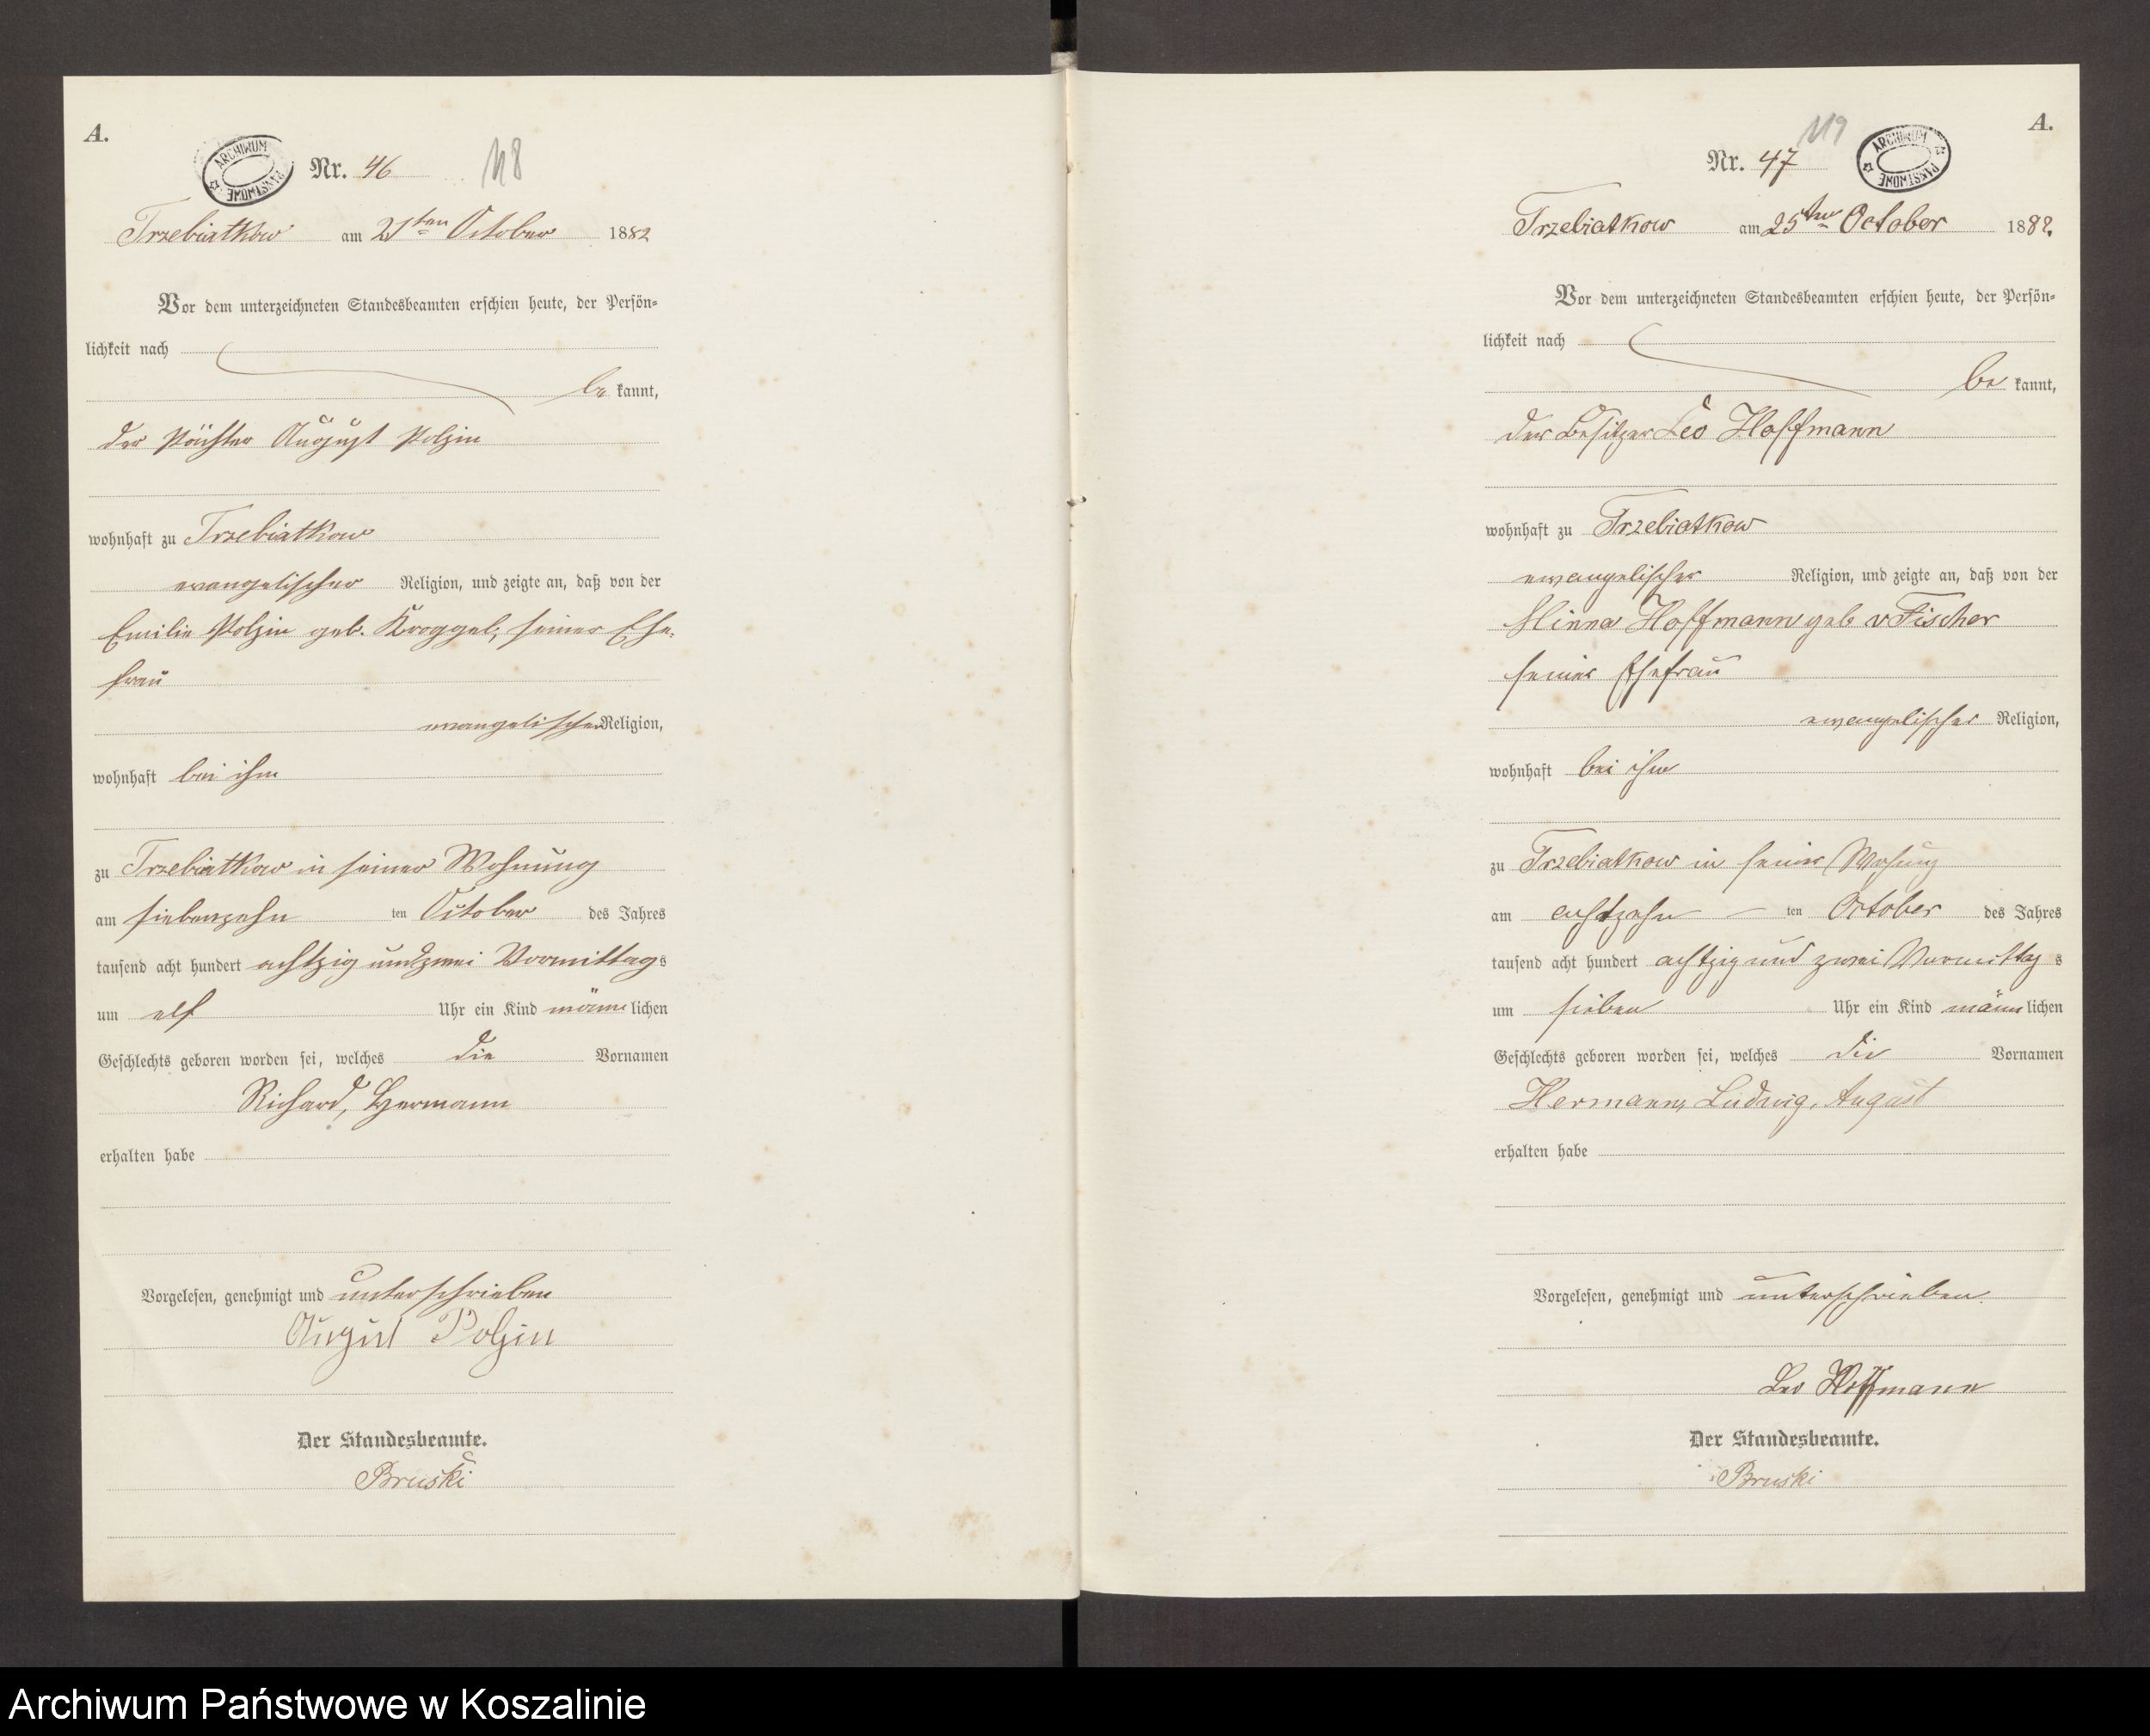 A.
ARCHIWUM PAŃSTWOWE
Nr. 46
118
Trzebiatkow am 21ten October 1882
Vor dem unterzeichneten Standesbeamten erschien heute, der Persön-
lichkeit nach
be kannt,
der Pächter August Polzin
wohnhaft zu Trzebiatkow
evangelischer Religion, und zeigte an, daß von der
Emilie Polzin geb. Kroggel, seiner Ehe-
frau
evangelischer Religion,
wohnhaft bei ihm
zu Trzebiatkow in seiner Wohnung
am siebenzehn ten October des Jahres
tausend acht hundert achtzig und zwei Vormittags
um elf Uhr ein Kind männlichen
Geschlechts geboren worden sei, welches die Vornamen
Richard, Hermann
erhalten habe
Vorgelesen, genehmigt und unterschrieben
August Polzin
Der Standesbeamte.
Bruski
A.
ARCHIWUM PAŃSTWOWE
119
Nr. 47
Trzebiatkow am 25ten October 1882.
Vor dem unterzeichneten Standesbeamten erschien heute, der Persön-
lichkeit nach
be kannt,
der Besitzer Leo Hoffmann
wohnhaft zu Trzebiatkow
evangelischer Religion, und zeigte an, daß von der
Minna Hoffmann geb v Fischer
seiner Ehefrau
evangelischer Religion,
wohnhaft bei ihm
zu Trzebiatkow in seiner Wohung
am achtzehn ten October des Jahres
tausend acht hundert achtzig und zwei Vormittags
um sieben Uhr ein Kind männlichen
Geschlechts geboren worden sei, welches die Vornamen
Hermann, Ludwig, August
erhalten habe
Vorgelesen, genehmigt und unterschrieben.
Leo Hoffmann
Der Standesbeamte.
Bruski
Archiwum Państwowe w Koszalinie